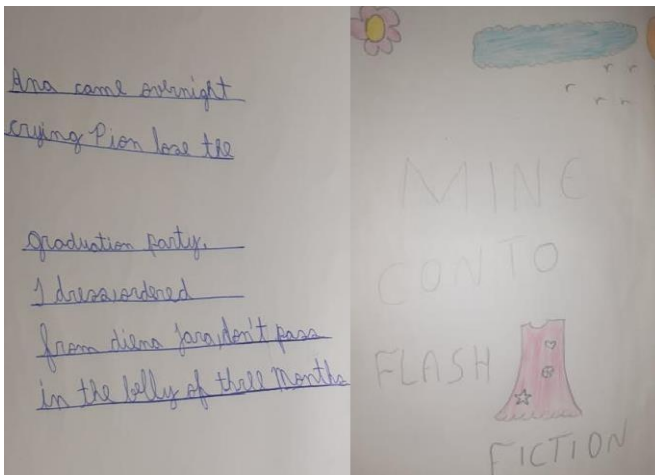 Ana came overnight
crying Pion lose the
graduation party.
I dress, ordered
from diena Jara, don't pass
in the belly of three Months
MINE
CONTO
FLASH
FICTION